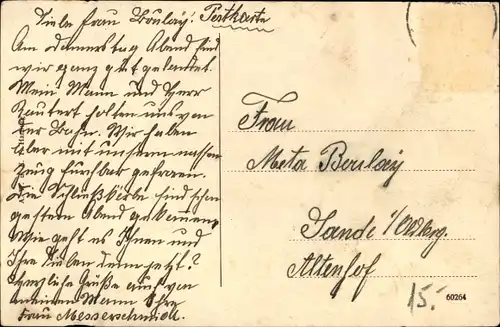 Liebe Frau Boulay! Postkarte
Am Donnerstag Abend sind
wir ganz gut gelandet.
Mein Mann und Herr
Rautert holten uns von
der Bahn. Wir haben
aber mit unserm nassen
Zeug furchtbar gefroren.
Die Schließkörbe sind schon
gestern Abend gekommen.
Wie geht es Ihnen und
Ihre Lieben denn jetzt?
Herzliche Grüße auch von
meinem Mann Ihre
Frau Messerschmidt.
Frau
Meta Boulay
Sande i/Oldbg.
Altenhof
15.-
60264